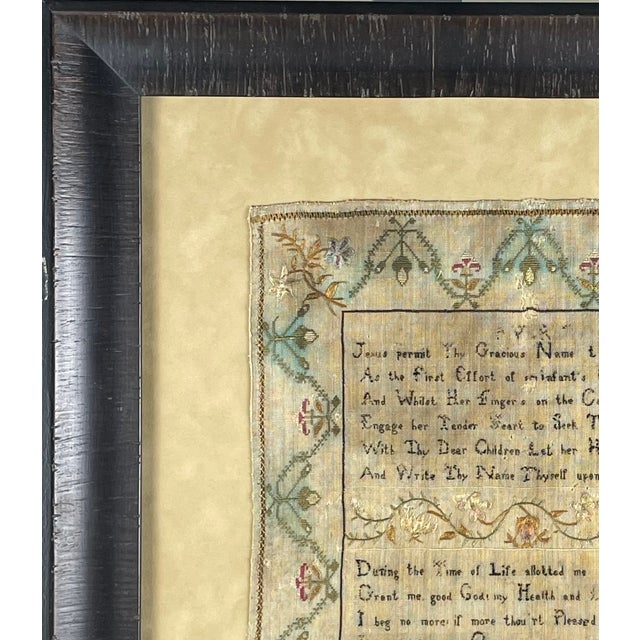 Jesus permit Thy Gracious Name t
As the First Effort of an infant's
And Whilst Her Fingers on the Ca
Engage her Tender Heart to Seek T
With Thy Dear Children Let her H
And Write Thy Name Thyself upon
During the Time of Life allotted me
Grant me good God my Health and
I beg no more if more thou'rt Pleased